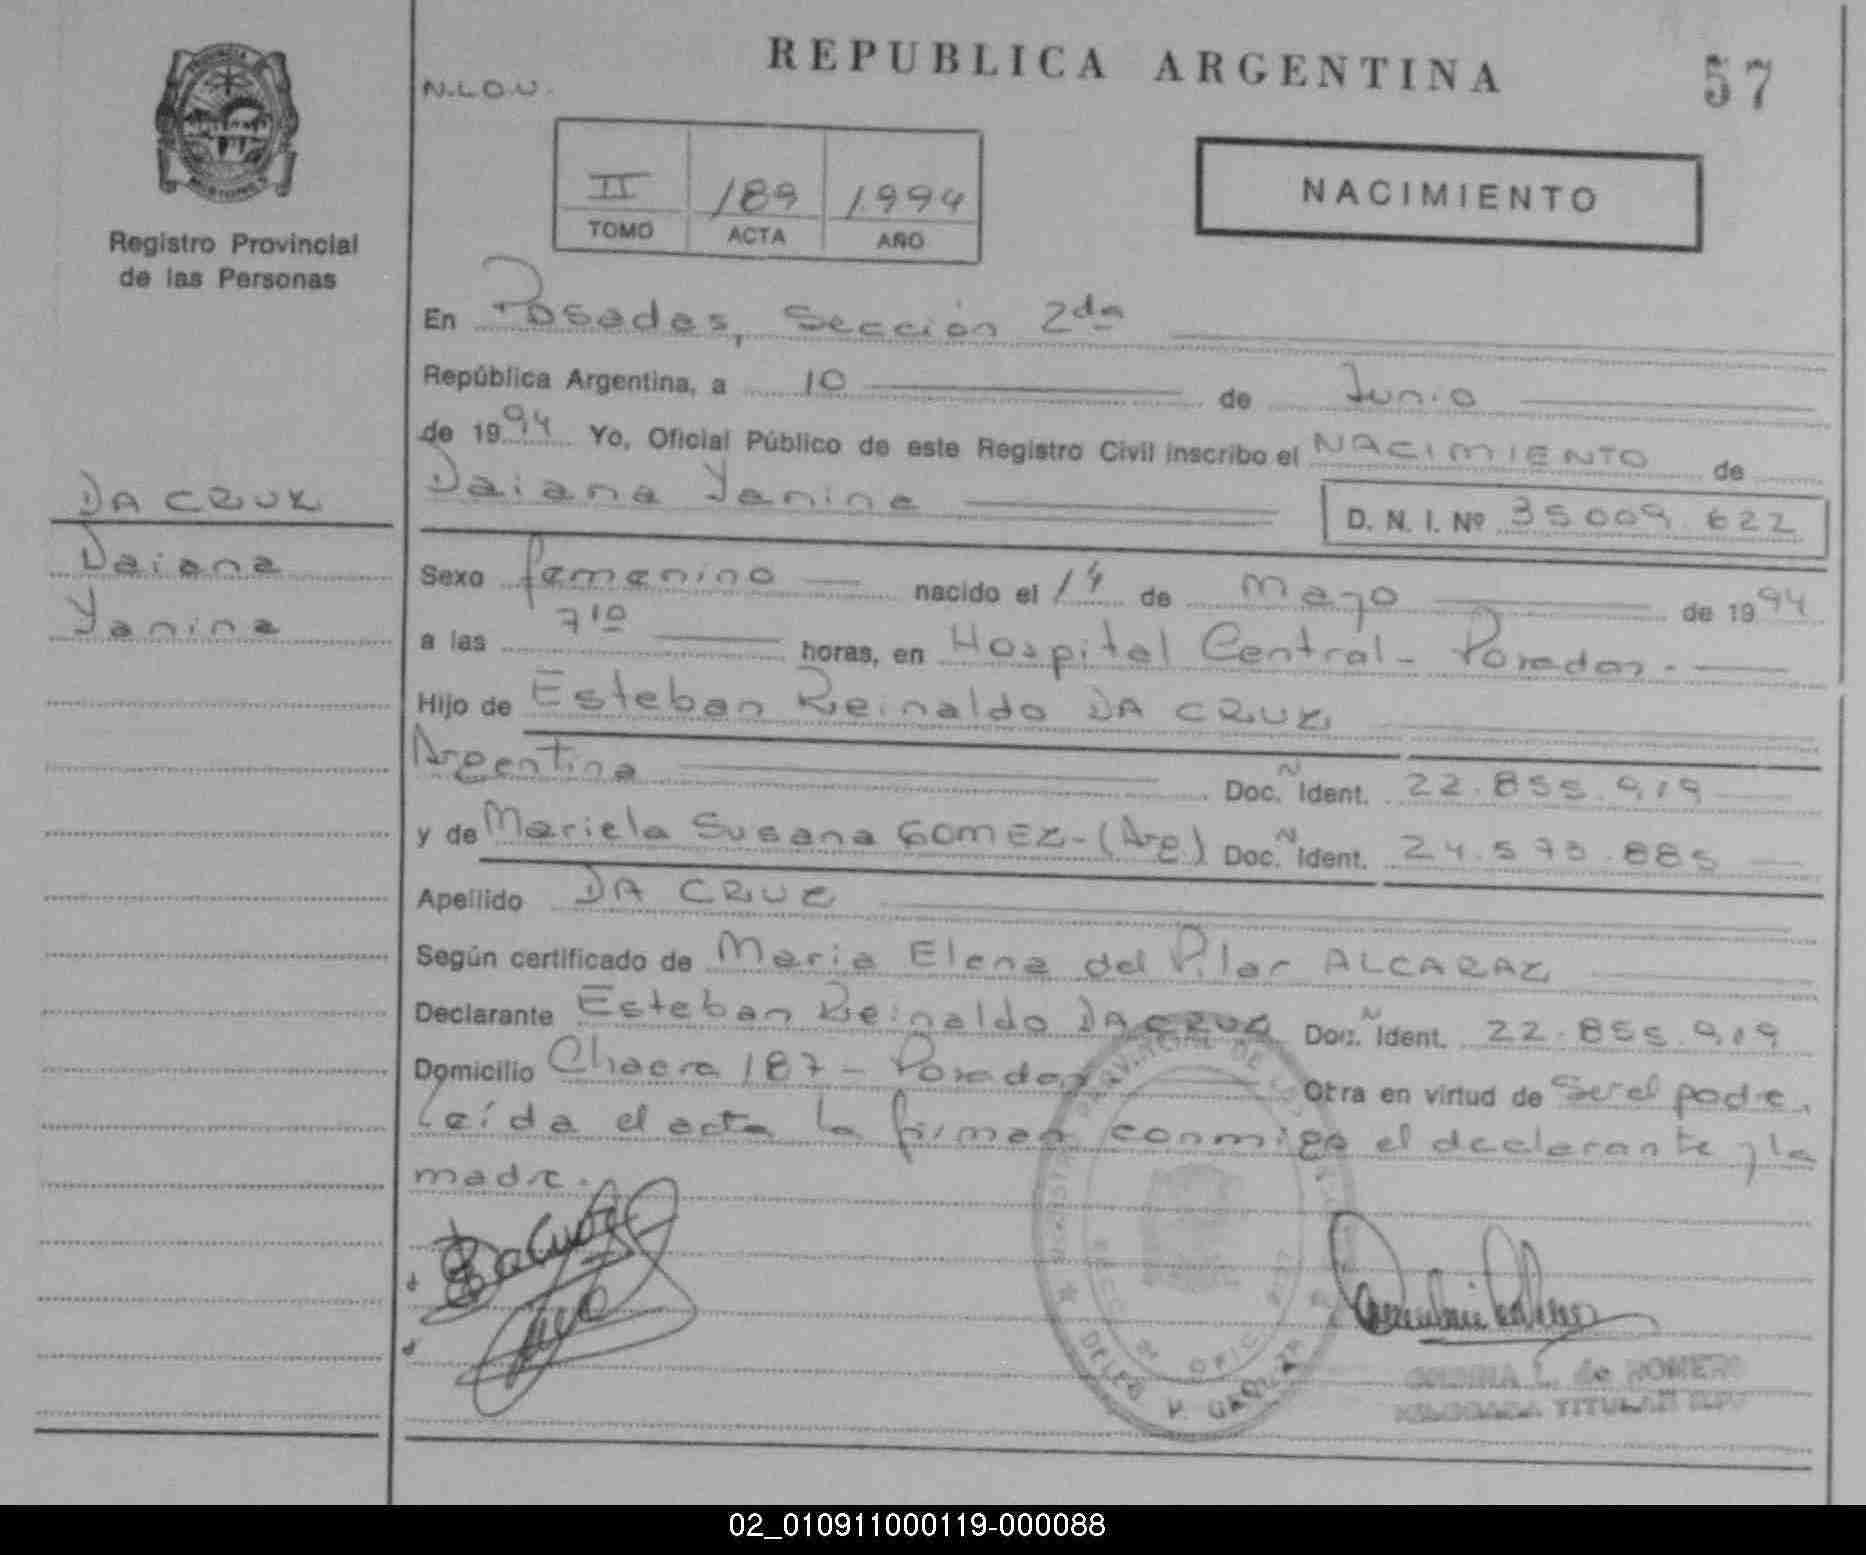 REPUBLICA ARGENTINA
57
N.L.O.U.
II
189
1994
TOMO
ACTA
AÑO
NACIMIENTO
Registro Provincial
de las Personas
DA CRUZ
Daiana
Yanina
En Posadas, Sección 2da
República Argentina, a 10 de Junio
de 1994 Yo, Oficial Público de este Registro Civil inscribo el NACIMIENTO de
Daiana Yanina D. N. I. Nº 35009.622
Sexo femenino nacido el 14 de Mayo de 1994
a las 7 10 horas, en Hospital Central - Posadas.-
Hijo de Esteban Reinaldo DA CRUZ
Argentina Doc. Ñ Ident. 22.855.919
y de Mariela Susana GOMEZ - (Arg.) Doc. Ñ Ident. 24.573.885
Apellido DA CRUZ
Según certificado de Maria Elena del Pilar ALCARAZ
Declarante Esteban Reinaldo DA CRUZ Doc. Ñ Ident. 22.855.919
Domicilio Chacra 187 - Posadas Otra en virtud de Ser el padre.
Leída el acta la firman conmigo el declarante y la
madre.
DE
OFIC.
de ROMERO
TITULAR
02_010911000119-000088